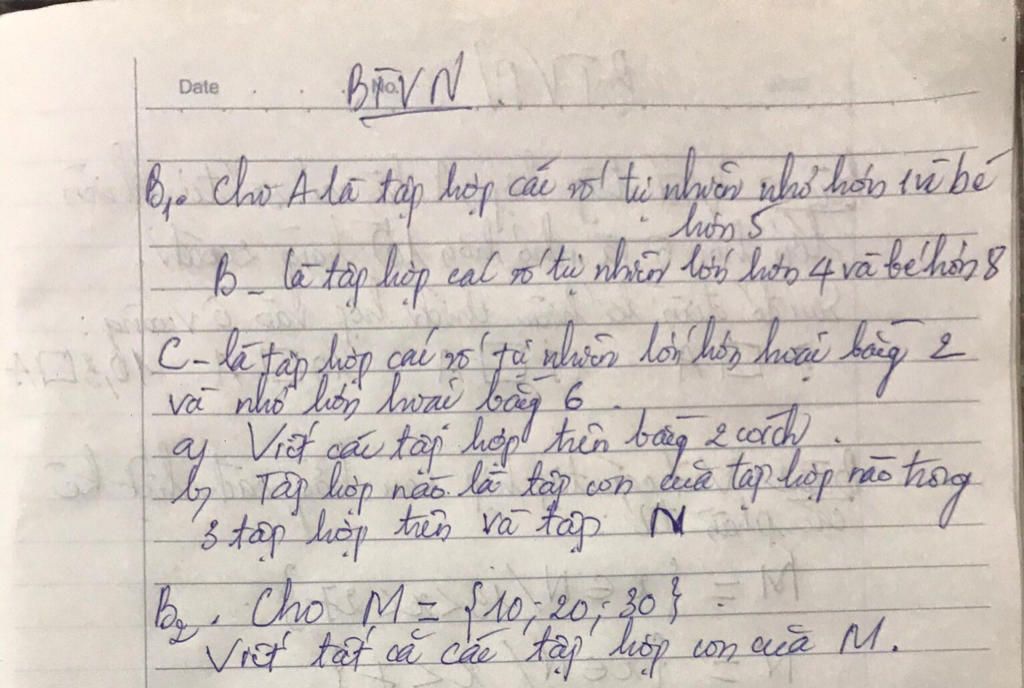 Date No.
BTVN
B₁. Cho A là tập hợp các số tự nhiên nhỏ hơn 1 và bé
hơn 5
B - là tập hợp các số tự nhiên lớn hơn 4 và bé hơn 8
C - là tập hợp các số tự nhiên lớn hơn hoặc bằng 2
và nhỏ hơn hoặc bằng 6.
a) Viết các tập hợp trên bằng 2 cách.
b) Tập hợp nào là tập con của tập hợp nào trong
3 tập hợp trên và tập N
B₂. Cho M = {10; 20; 30}.
Viết tất cả các tập hợp con của M.